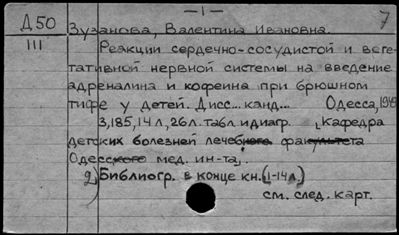 — 1 — 7
Д50 Зузанова, Валентина Ивановна.
III Реакции сердечно-сосудистой и веге-
тативной нервной системы на введение
адреналина и кофеина при брюшном
тифе у детей. Дисс... канд... Одесса, 1945
3,185,14 л, 26 л. табл. и диагр. (Кафедра
детских болезней лечебного факультета
Одесского мед. ин-та).
2) Библиогр. в конце кн. (1-14 л.)
см. след. карт.